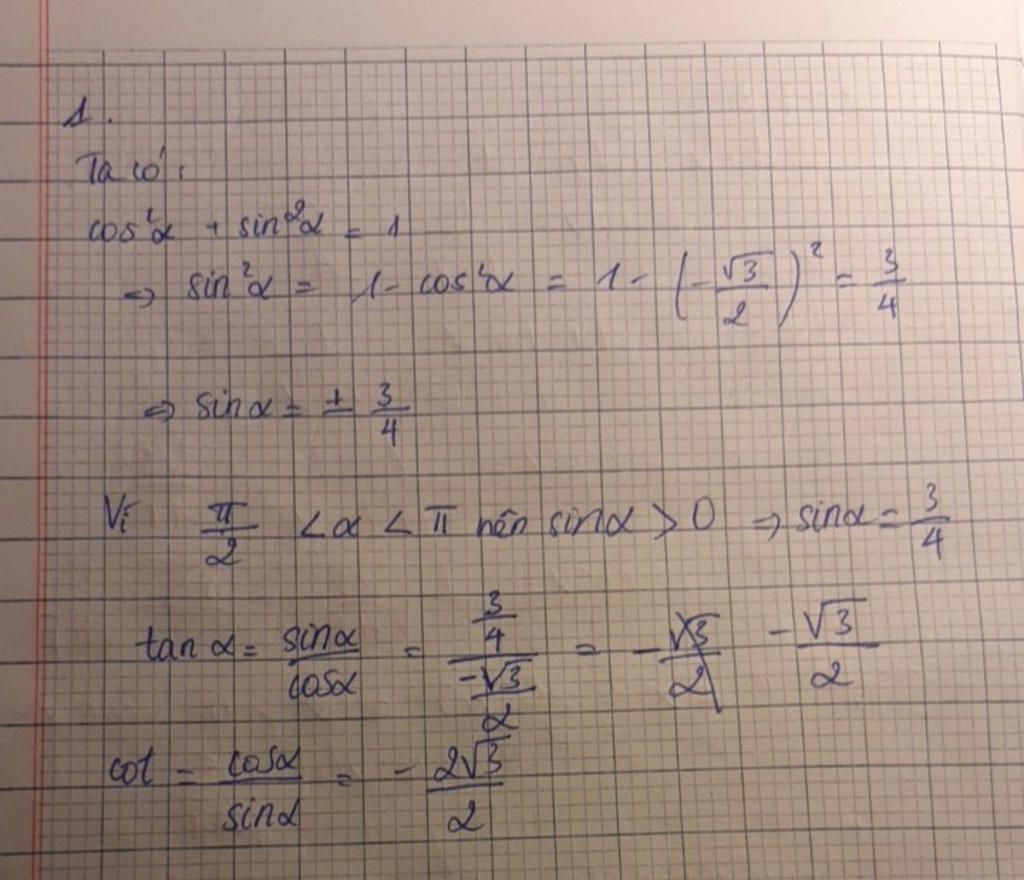 1.
Ta có:
cos²α + sin²α = 1
⇒ sin²α = 1 - cos²α = 1 - (-√3/2)² = 3/4
⇒ sinα = ± 3/4
Vì π/2 < α < π nên sinα > 0 ⇒ sinα = 3/4
tan α = sinα/cosα = (3/4)/(-√3/2) = -√3/2 -√3/2
cot = cosα/sinα = - 2√3/2